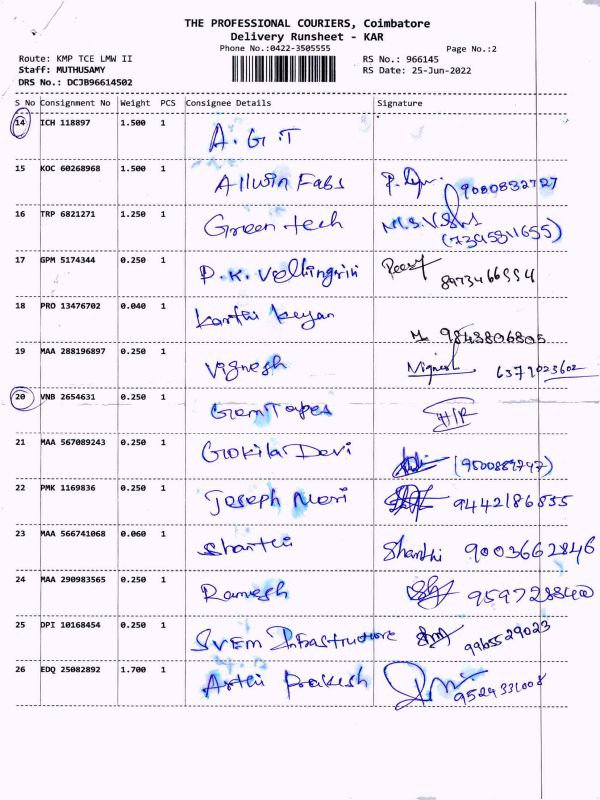 THE PROFESSIONAL COURIERS, Coimbatore
Delivery Runsheet - KAR
Phone No.:0422-3505555 Page No.:2
Route: KMP TCE LMW II RS No.: 966145
Staff: MUTHUSAMY RS Date: 25-Jun-2022
DRS No.: DCJB96614502
S No Consignment No Weight PCS Consignee Details Signature
14 ICH 118897 1.500 1 A.G.T
15 KOC 60268968 1.500 1 Allwin Fabs
16 TRP 6821271 1.250 1 Green tech
17 GPM 5174344 0.250 1 P.K. Vellingiri
18 PRO 13476702 0.040 1 Karthi Keyan 9843806805
19 MAA 288196897 0.250 1 Vignesh Vignesh 6379023602
20 VNB 2654631 0.250 1 Gem Tapes
21 MAA 567089243 0.250 1 Gokila Devi
22 PMK 1169836 0.250 1 Joseph Meri
23 MAA 566741068 0.060 1 Shanthi Shanthi 9003662846
24 MAA 290983565 0.250 1 Ramesh
25 DPI 10168454 0.250 1 SVEM Infrastructure 9965529023
26 EDQ 25082892 1.700 1 Arthi Prakash 9524331008